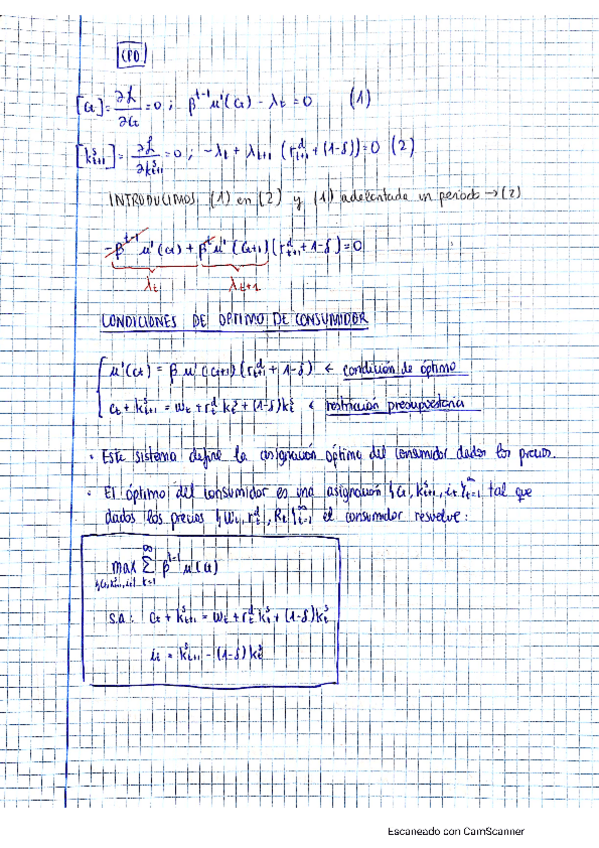 CPO
[c_t] = ∂L/∂c_t = 0 ; β^{t-1} u'(c_t) - λ_t = 0 (1)
[k^s_{t+1}] = ∂L/∂k^s_{t+1} = 0 ; -λ_t + λ_{t+1} (r^d_{t+1} + (1-δ)) = 0 (2)
INTRODUCIMOS (1) en (2) y (1) adelantada un periodo → (2)
-β^{t-1} u'(c_t) + β^t u'(c_{t+1}) (r^d_{t+1} + 1-δ) = 0
λ_t λ_{t+1}
CONDICIONES DE OPTIMO DE CONSUMIDOR
u'(c_t) = β u'(c_{t+1}) (r^d_{t+1} + 1-δ) ← condición de óptimo
c_t + k^s_{t+1} = w_t + r^d_t k^s_t + (1-δ)k^s_t ← restricción presupuestaria
• Este sistema define la asignación óptima del consumidor dados los precios.
• El óptimo del consumidor es una asignación {c_t, k^s_{t+1}, i_t}^∞_{t=1} tal que
dados los precios {w_t, r^d_t, R_t}^∞_{t=1} el consumidor resuelve:
max Σ^∞ β^{t-1} u(c_t)
{c_t, k^s_{t+1}, i_t} t=1
s.a: c_t + k^s_{t+1} = w_t + r^d_t k^s_t + (1-δ)k^s_t
i_t = k^s_{t+1} - (1-δ)k^s_t
Escaneado con CamScanner